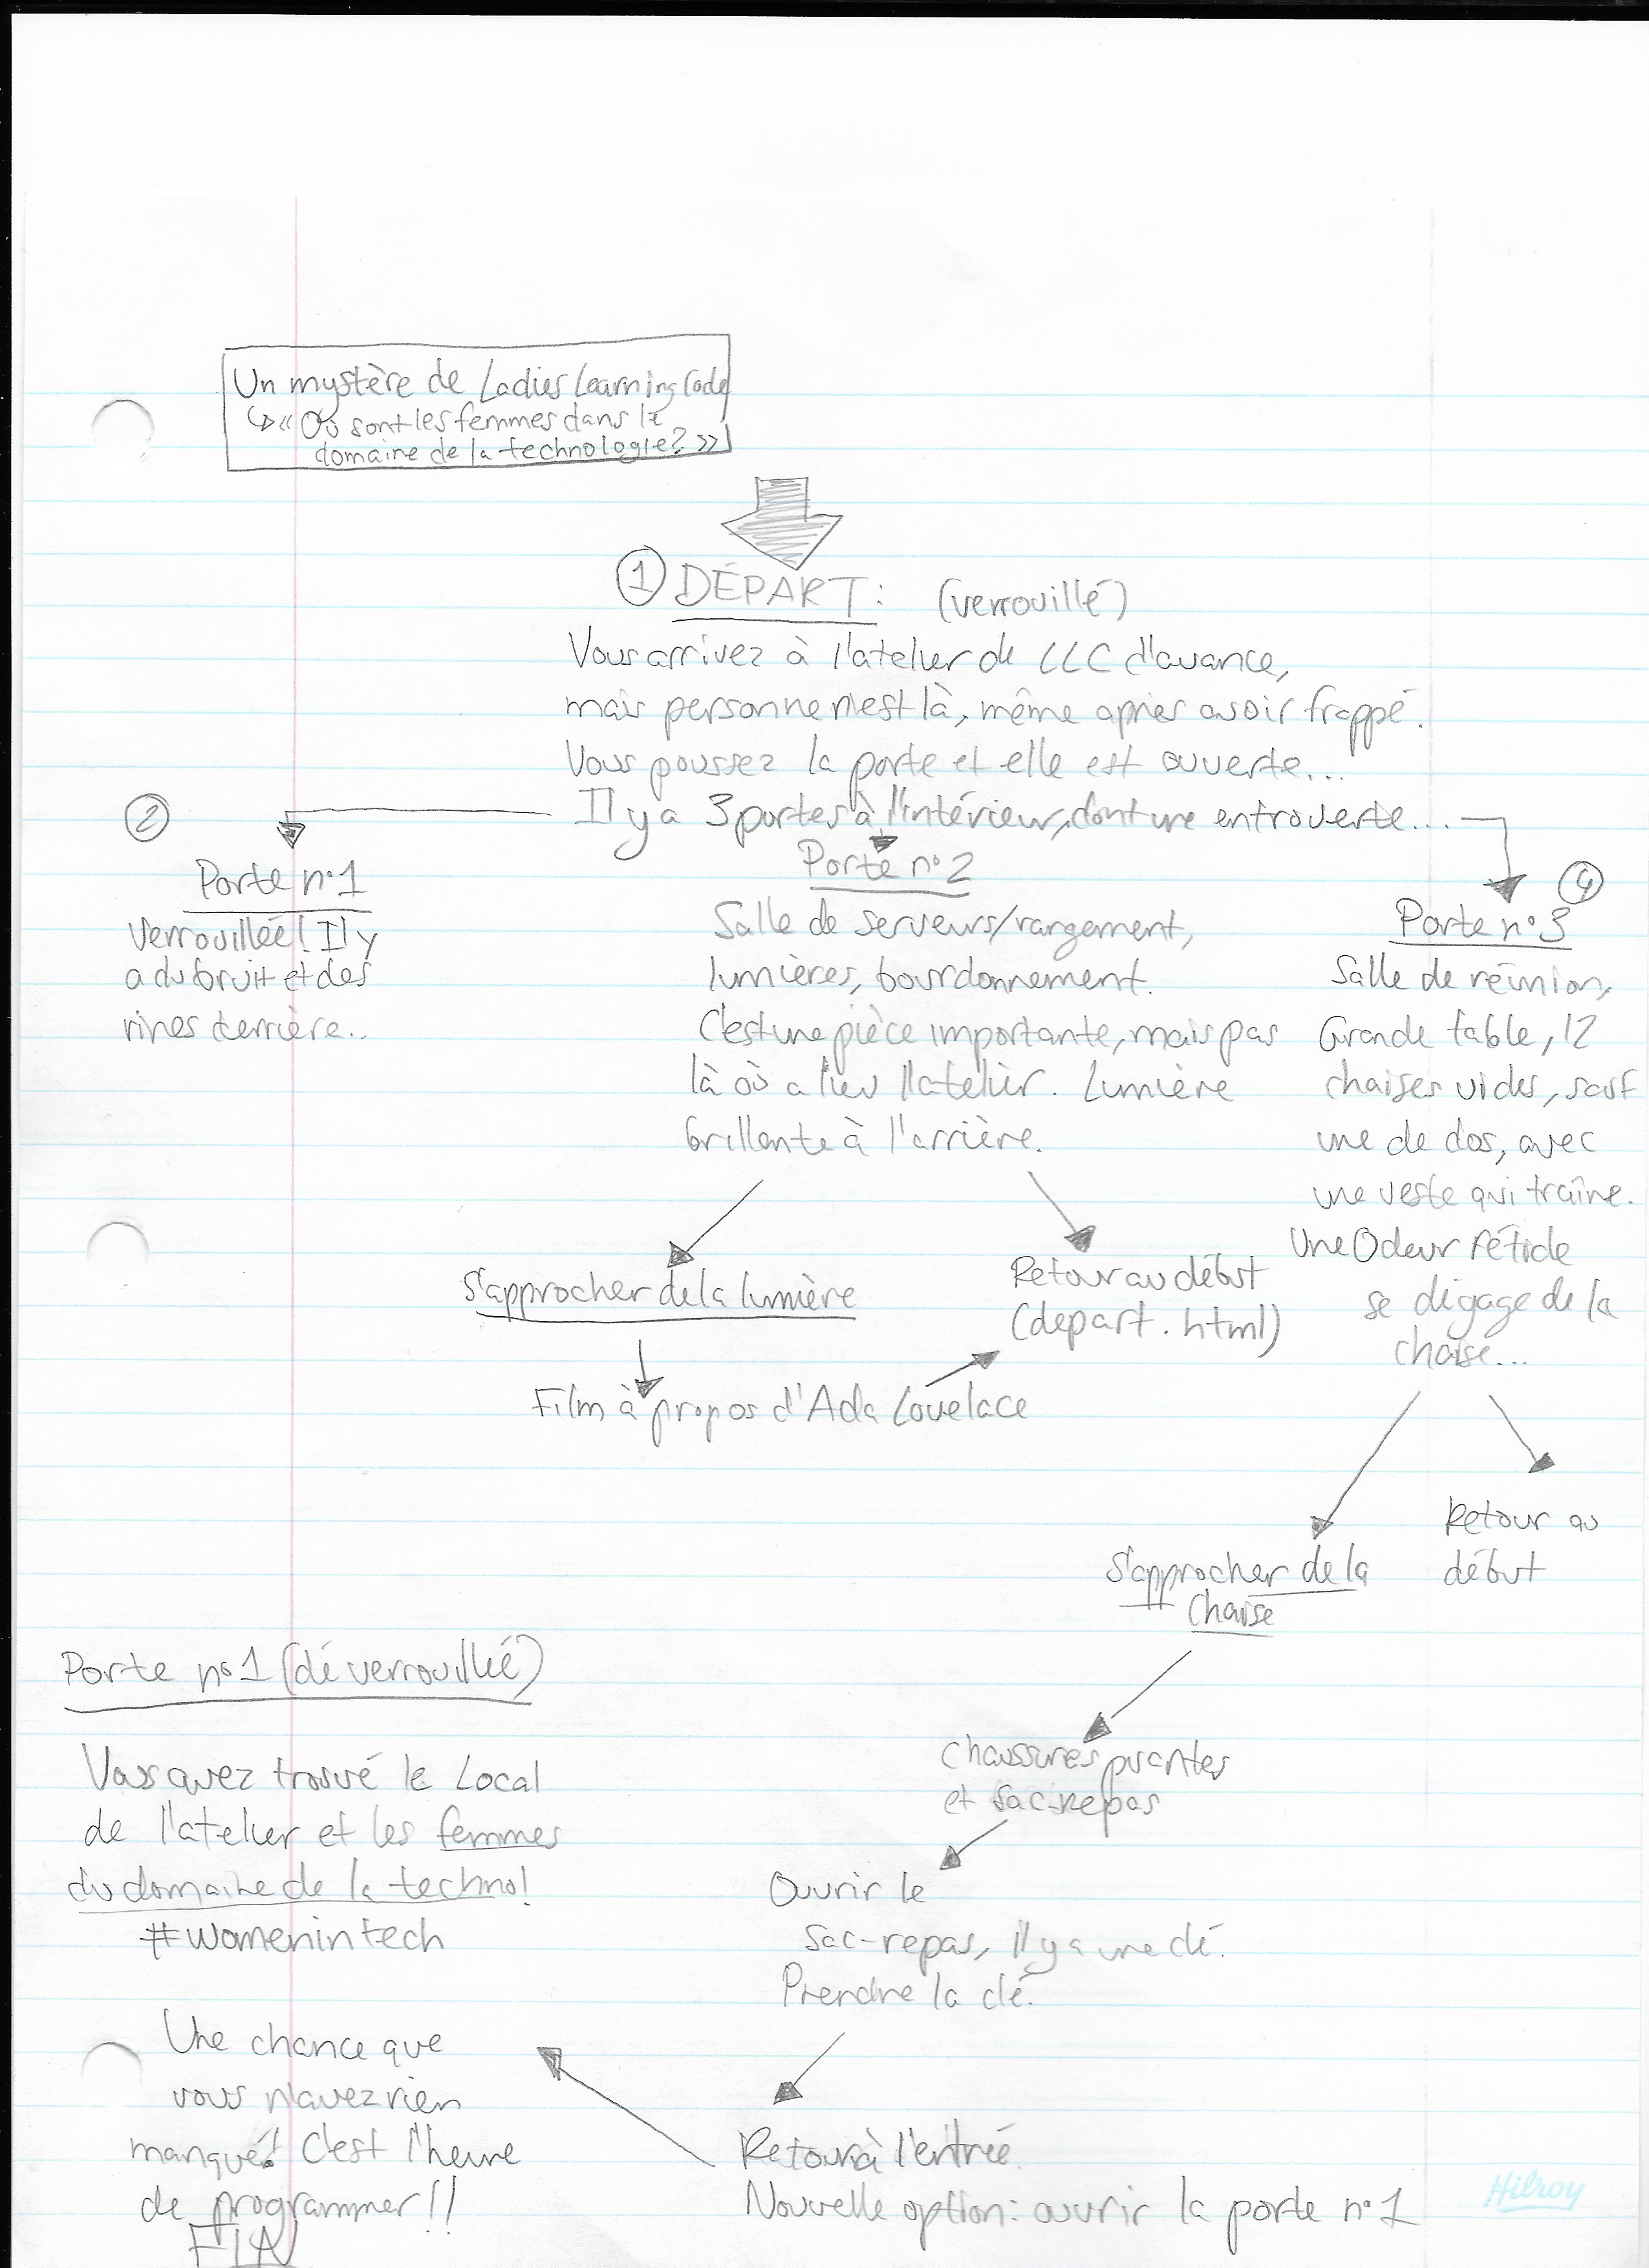 Un mystère de Ladies Learning Code
↳ « Où sont les femmes dans le
domaine de la technologie? »
① DÉPART: (verrouillé)
Vous arrivez à l'atelier de LLC d'avance,
mais personne n'est là, même après avoir frappé.
Vous poussez la porte et elle est ouverte...
Il y a 3 portes à l'intérieur, dont une entrouverte...
②
Porte n°1
Verrouillée! Il y
a du bruit et des
rires derrière..
Porte n°2
Salle de serveurs/rangement,
lumières, bourdonnement.
C'est une pièce importante, mais pas
là où a lieu l'atelier. Lumière
brillante à l'arrière.
④
Porte n°3
Salle de réunion,
Grande table, 12
chaises vides, sauf
une de dos, avec
une veste qui traîne.
Une Odeur fétide
se dégage de la
chaise...
S'approcher de la lumière
Retour au début
(depart.html)
Film à propos d'Ada Lovelace
S'approcher de la
chaise
Retour au
début
chaussures puantes
et sac-repas
Ouvrir le
sac-repas, il y a une clé.
Prendre la clé.
Retour à l'entrée.
Nouvelle option: ouvrir la porte n°1
Porte n°1 (déverrouillé)
Vous avez trouvé le Local
de l'atelier et les femmes
du domaine de la techno!
#womenintech
Une chance que
vous n'avez rien
manqué! C'est l'heure
de programmer!!
FIN
Hilroy